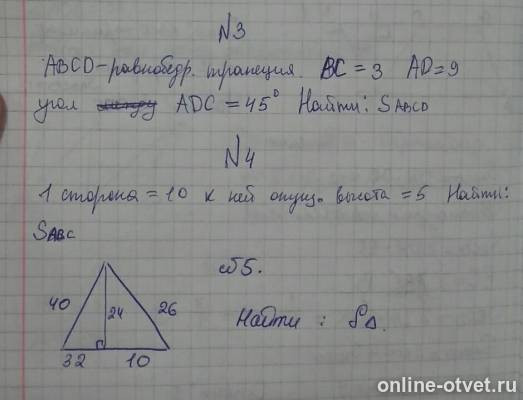 N3
ABCD - равнобедр. трапеция. BC = 3 AD = 9
угол ADC = 45° Найти: SABCD
N4
1 сторона = 10 к ней опущ. высота = 5 Найти:
SABC
N5.
40 24 26
32 10
Найти : S△.
online-otvet.ru